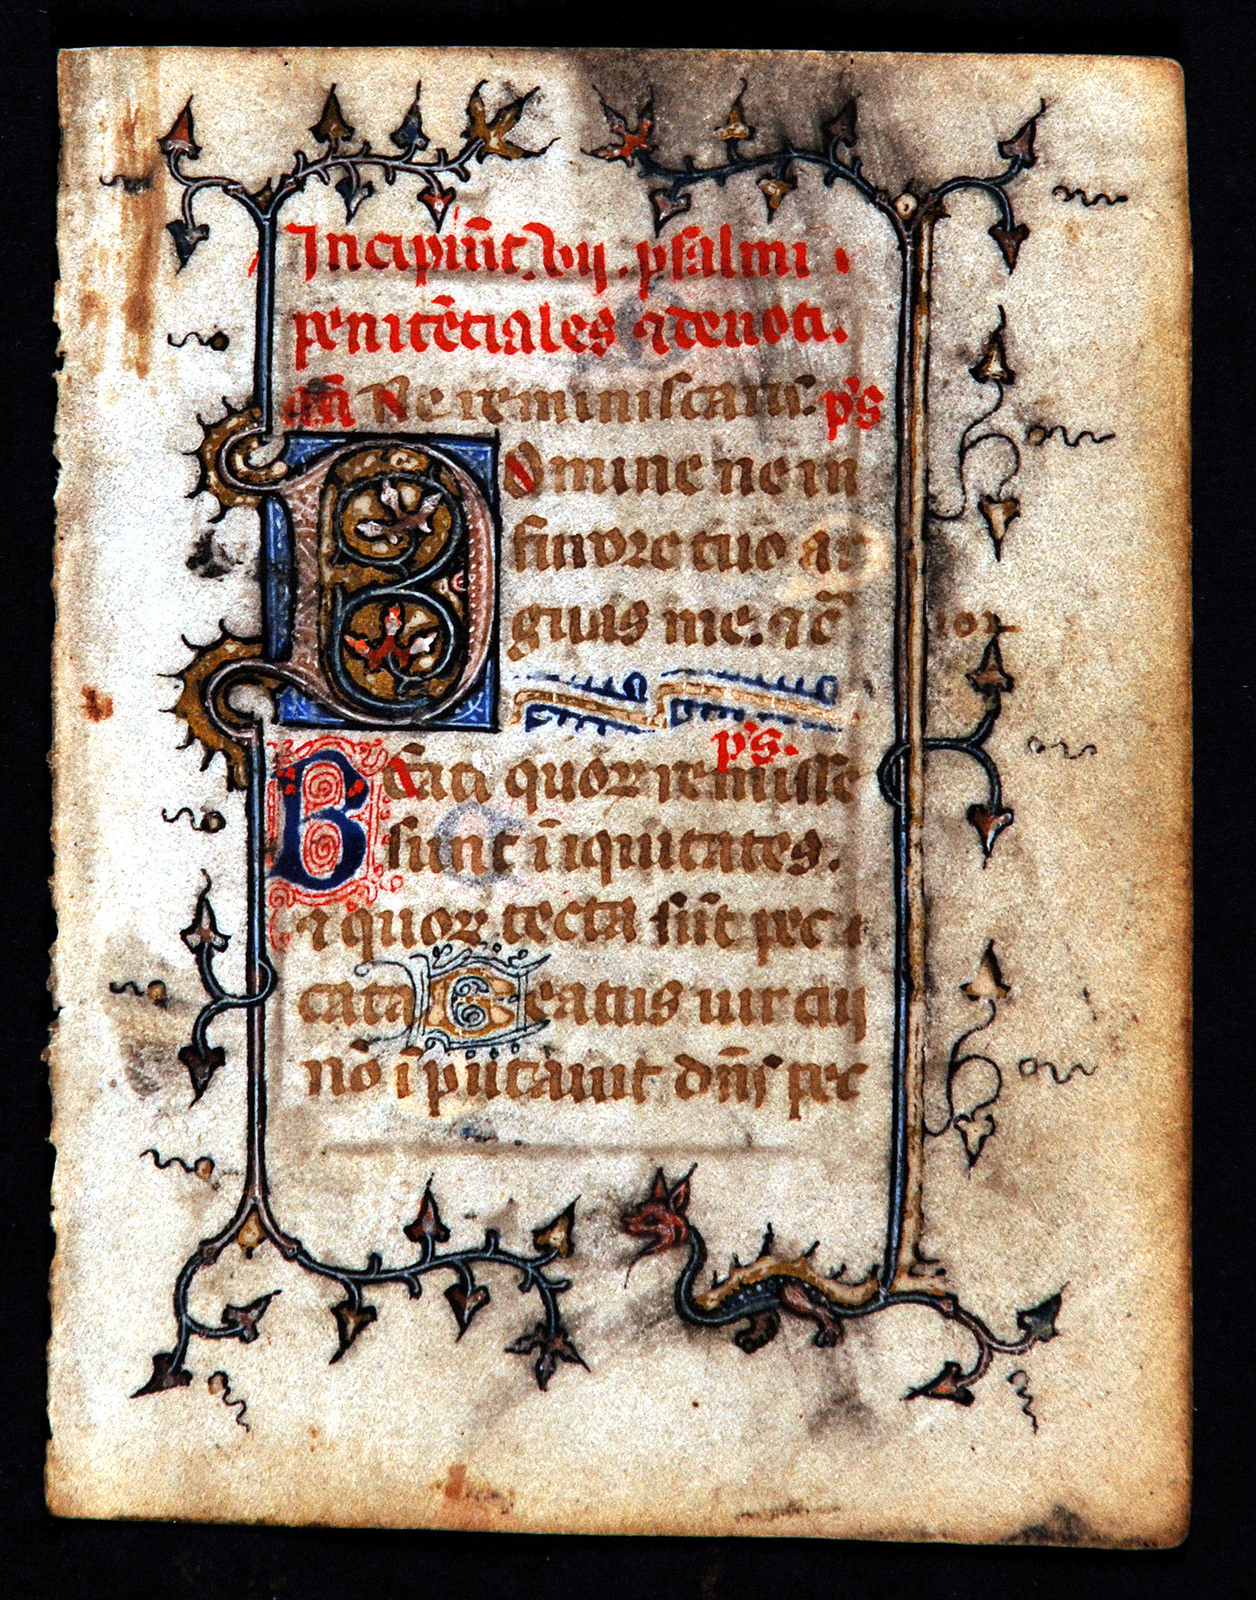 Incipiu̅t. vij. psalmi.
penite̅tiales ⁊ deuoti.
an̅ Ne reminiscaris. ps
Domine ne in
furore tuo ar
guas me. ⁊c̅
ps.
Beati quoꝝ remisse
sunt i̅iquitates.
⁊ quoꝝ tecta su̅t pec
cata Beatus uir cui
no̅ i̅putauit dn̅s pec